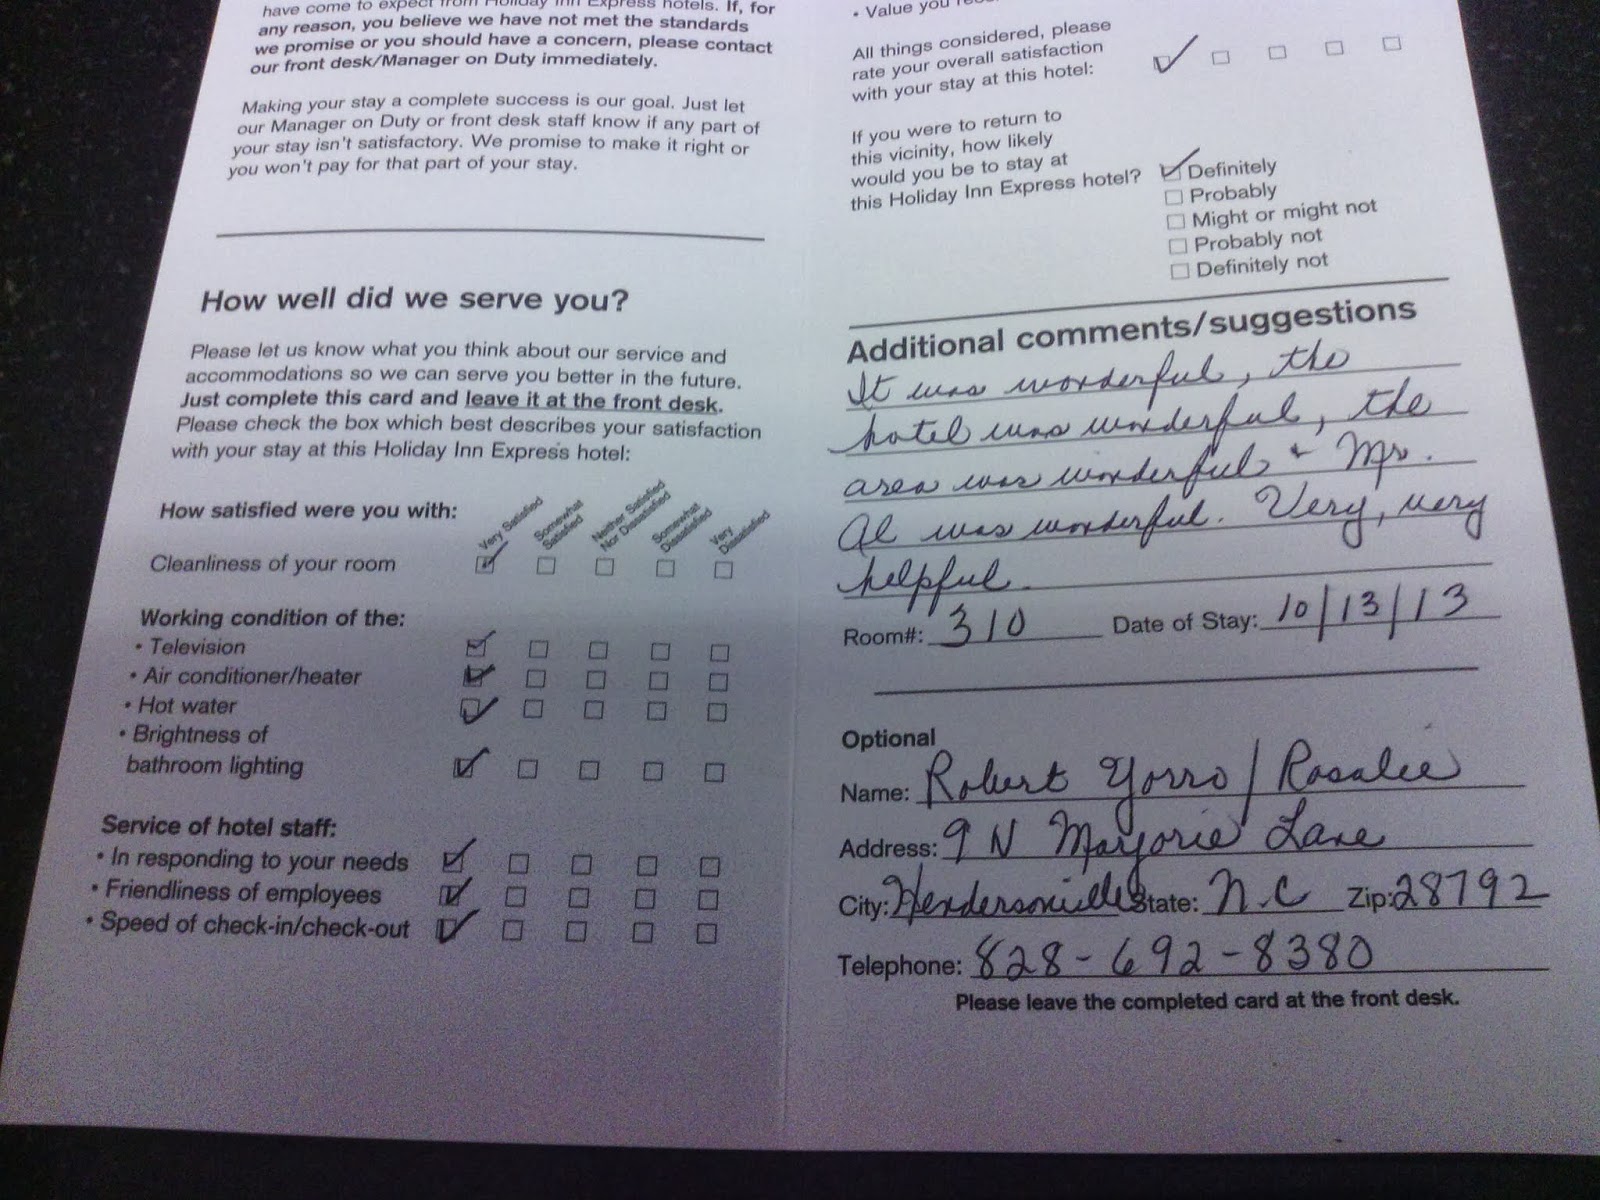 have come to expect from Holiday Inn Express hotels. If, for
any reason, you believe we have not met the standards
we promise or you should have a concern, please contact
our front desk/Manager on Duty immediately.
Making your stay a complete success is our goal. Just let
our Manager on Duty or front desk staff know if any part of
your stay isn't satisfactory. We promise to make it right or
you won't pay for that part of your stay.
How well did we serve you?
Please let us know what you think about our service and
accommodations so we can serve you better in the future.
Just complete this card and leave it at the front desk.
Please check the box which best describes your satisfaction
with your stay at this Holiday Inn Express hotel:
How satisfied were you with:
Very Satisfied
Somewhat
Satisfied
Neither Satisfied
Nor Dissatisfied
Somewhat
Dissatisfied
Very
Dissatisfied
Cleanliness of your room
Working condition of the:
• Television
• Air conditioner/heater
• Hot water
• Brightness of
bathroom lighting
Service of hotel staff:
• In responding to your needs
• Friendliness of employees
• Speed of check-in/check-out
• Value you
All things considered, please
rate your overall satisfaction
with your stay at this hotel:
If you were to return to
this vicinity, how likely
would you be to stay at
this Holiday Inn Express hotel?
Definitely
Probably
Might or might not
Probably not
Definitely not
Additional comments/suggestions
It was wonderful, the
hotel was wonderful, the
area was wonderful & Mr.
Al was wonderful. Very, very
helpful.
Room#: 310 Date of Stay: 10/13/13
Optional
Name: Robert Yorro/Rosalie
Address: 9 N Marjorie Lane
City: Hendersonville State: N.C Zip: 28792
Telephone: 828-692-8380
Please leave the completed card at the front desk.